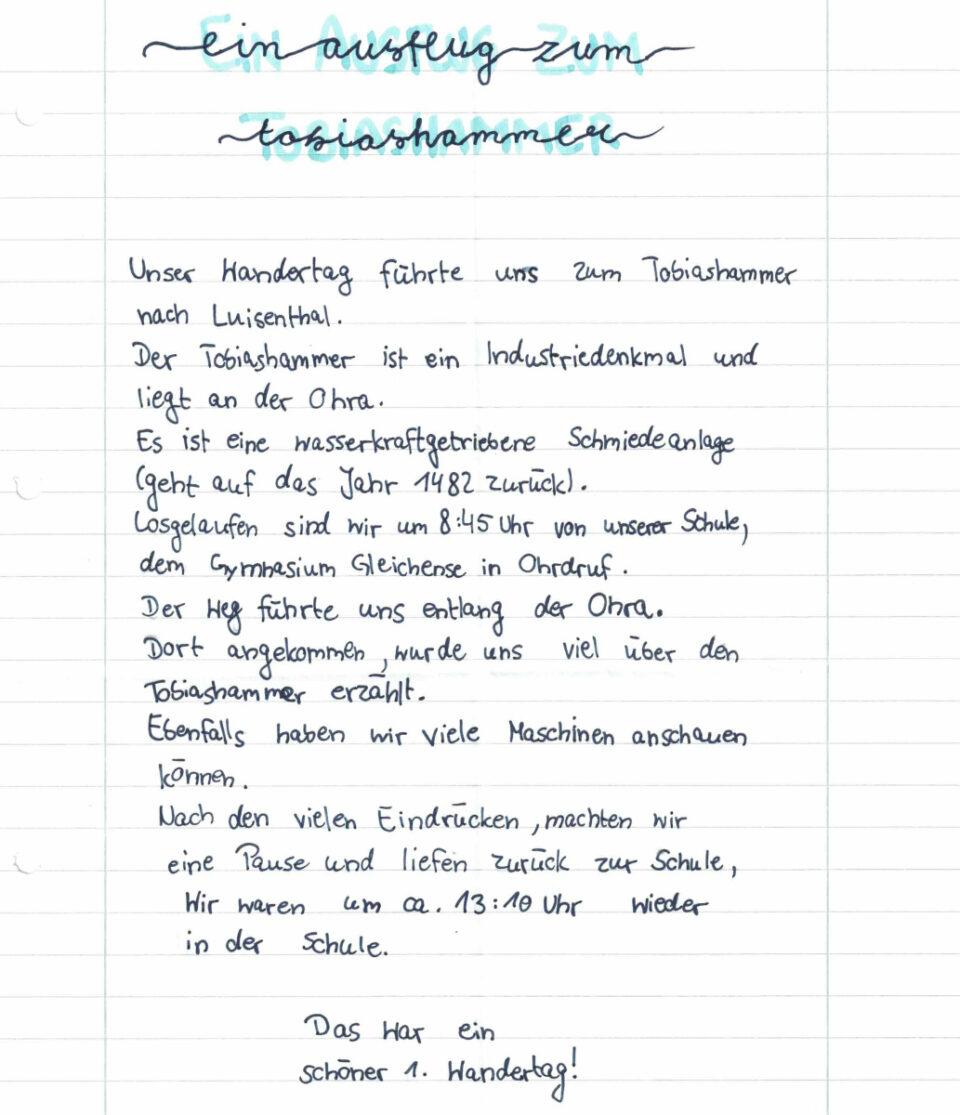 ein ausflug zum
tobiashammer
Unser Wandertag führte uns zum Tobiashammer
nach Luisenthal.
Der Tobiashammer ist ein Industriedenkmal und
liegt an der Ohra.
Es ist eine wasserkraftgetriebene Schmiedeanlage
(geht auf das Jahr 1482 zurück).
Losgelaufen sind wir um 8:45 Uhr von unserer Schule,
dem Gymnasium Gleichense in Ohrdruf.
Der Weg führte uns entlang der Ohra.
Dort angekommen, wurde uns viel über den
Tobiashammer erzählt.
Ebenfalls haben wir viele Maschinen anschauen
können.
Nach den vielen Eindrücken, machten wir
eine Pause und liefen zurück zur Schule,
Wir waren um ca. 13:10 Uhr wieder
in der Schule.
Das war ein
schöner 1. Wandertag!